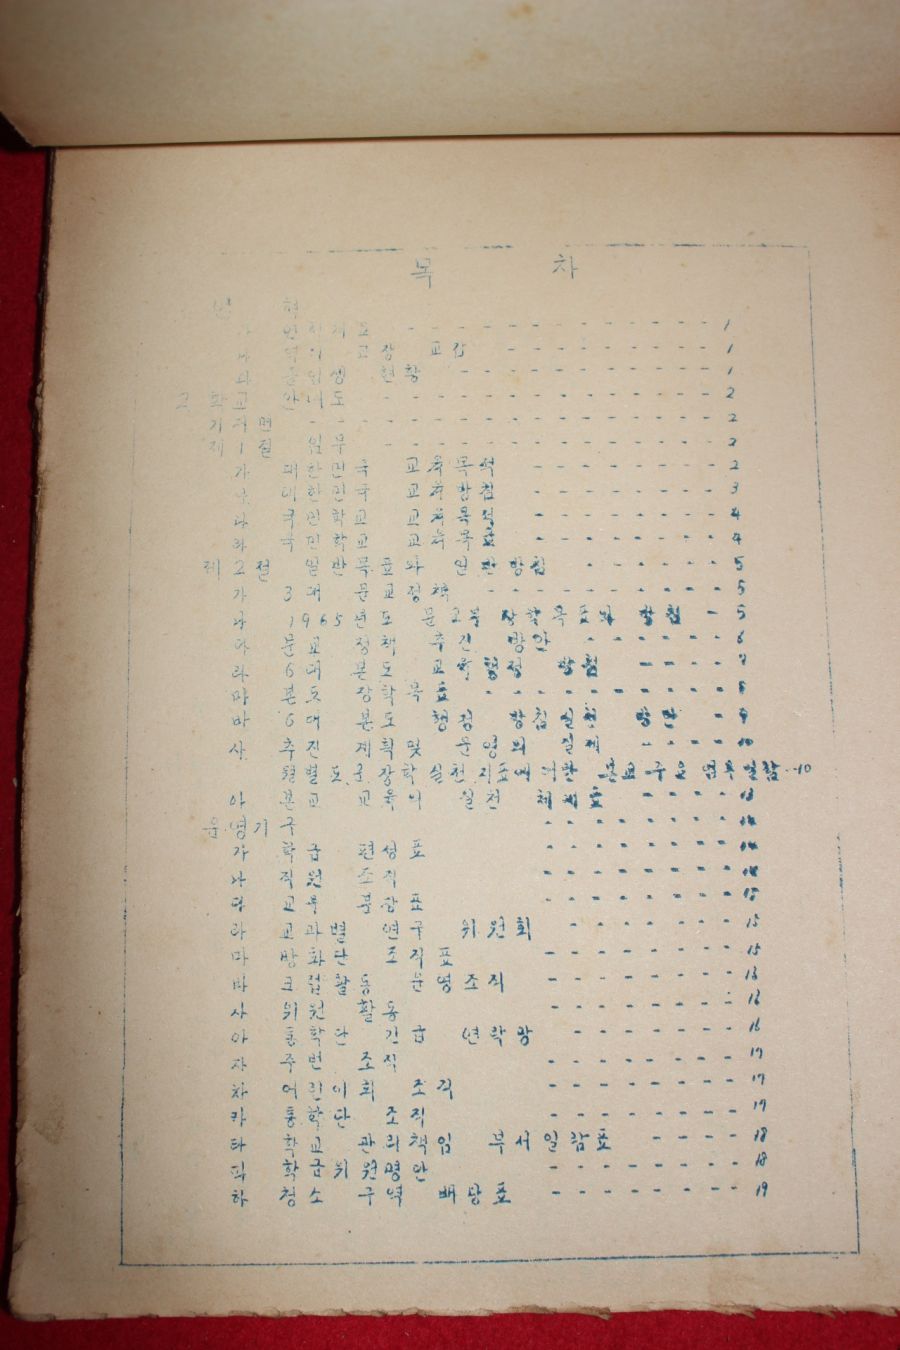 목 차
연 혁
가 연 혁 개 요 - - - - - - - - - - - - - 1
나 역 대 교 장 교 감 - - - - - - - - - 1
다 졸 업 생 현 황 - - - - - - - - - - - 1
학 교 안 내 도 - - - - - - - - - - - - - - 2
- - - - - - - - - - - - - - - 2
제 1 절 임 무 - - - - - - - - - - - - - - 2
가 대 한 민 국 교 육 목 적 - - - - - - - - 2
나 대 한 민 국 교 육 방 침 - - - - - - - - 3
다 국 민 학 교 교 육 목 적 - - - - - - - - 4
라 국 민 학 교 교 육 목 표 - - - - - - - - 4
제 2 절 일 반 목 표 와 일 반 방 침 - - - - - - 5
가 3 대 문 교 정 책 - - - - - - - - - - 5
나 1965 년 도 문 교 부 장 학 목 표 와 방 침 - 5
다 문 교 정 책 추 진 방 안 - - - - - - 6
라 6 대 본 도 교 육 행 정 방 침 - - - - 7
마 본 도 장 학 목 표 - - - - - - - - - - 8
바 6 대 본 도 행 정 방 침 실 천 방 안 - 9
사 추 진 계 획 및 운 영 의 실 제 - - - - - 10
월 별 도 군 장 학 실 천 지 표 에 의 한 본 교 일 람 - 10
아 본 교 교 육 의 실 천 체 제 표 - - - - 13
운 영 기 구 - - - - - - - - 14
가 학 급 편 성 표 - - - - - - - - 14
나 직 원 조 직 - - - - - - - - 14
다 교 무 분 장 표 - - - - - - - - 15
라 교 과 별 연 구 위 원 회 - - - - - - - 15
마 방 화 단 조 직 표 - - - - - - - - 15
바 크 럽 활 동 운 영 조 직 - - - - - - - - 16
사 위 원 활 동 - - - - - - - - 16
아 통 학 단 긴 급 연 락 망 - - - - - - - - 16
자 주 번 조 직 - - - - - - - - 17
차 어 린 이 회 조 직 - - - - - - - - 17
카 통 학 단 조 직 - - - - - - - - 17
타 학 교 관 리 책 임 부 서 일 람 표 - - - - 18
파 학 급 위 원 명 안 - - - - - - - - 18
하 청 소 구 역 배 당 표 - - - - - - - - 19